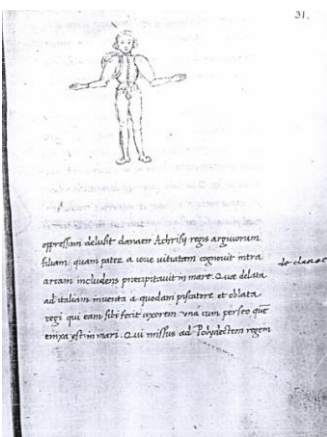 31.
oppressam delusit danaen Achrisij regis argivorum
filiam: quam pater a iove vitiatam cognovit intra
arcam includens precipitavit in mare. Quæ delata
ad italiam inventa a quodam piscatore et oblata
regi qui eam sibi fecit uxorem una cum perseo quē
enixa est in mari. Qui missus ad Polydectem regem
de danae